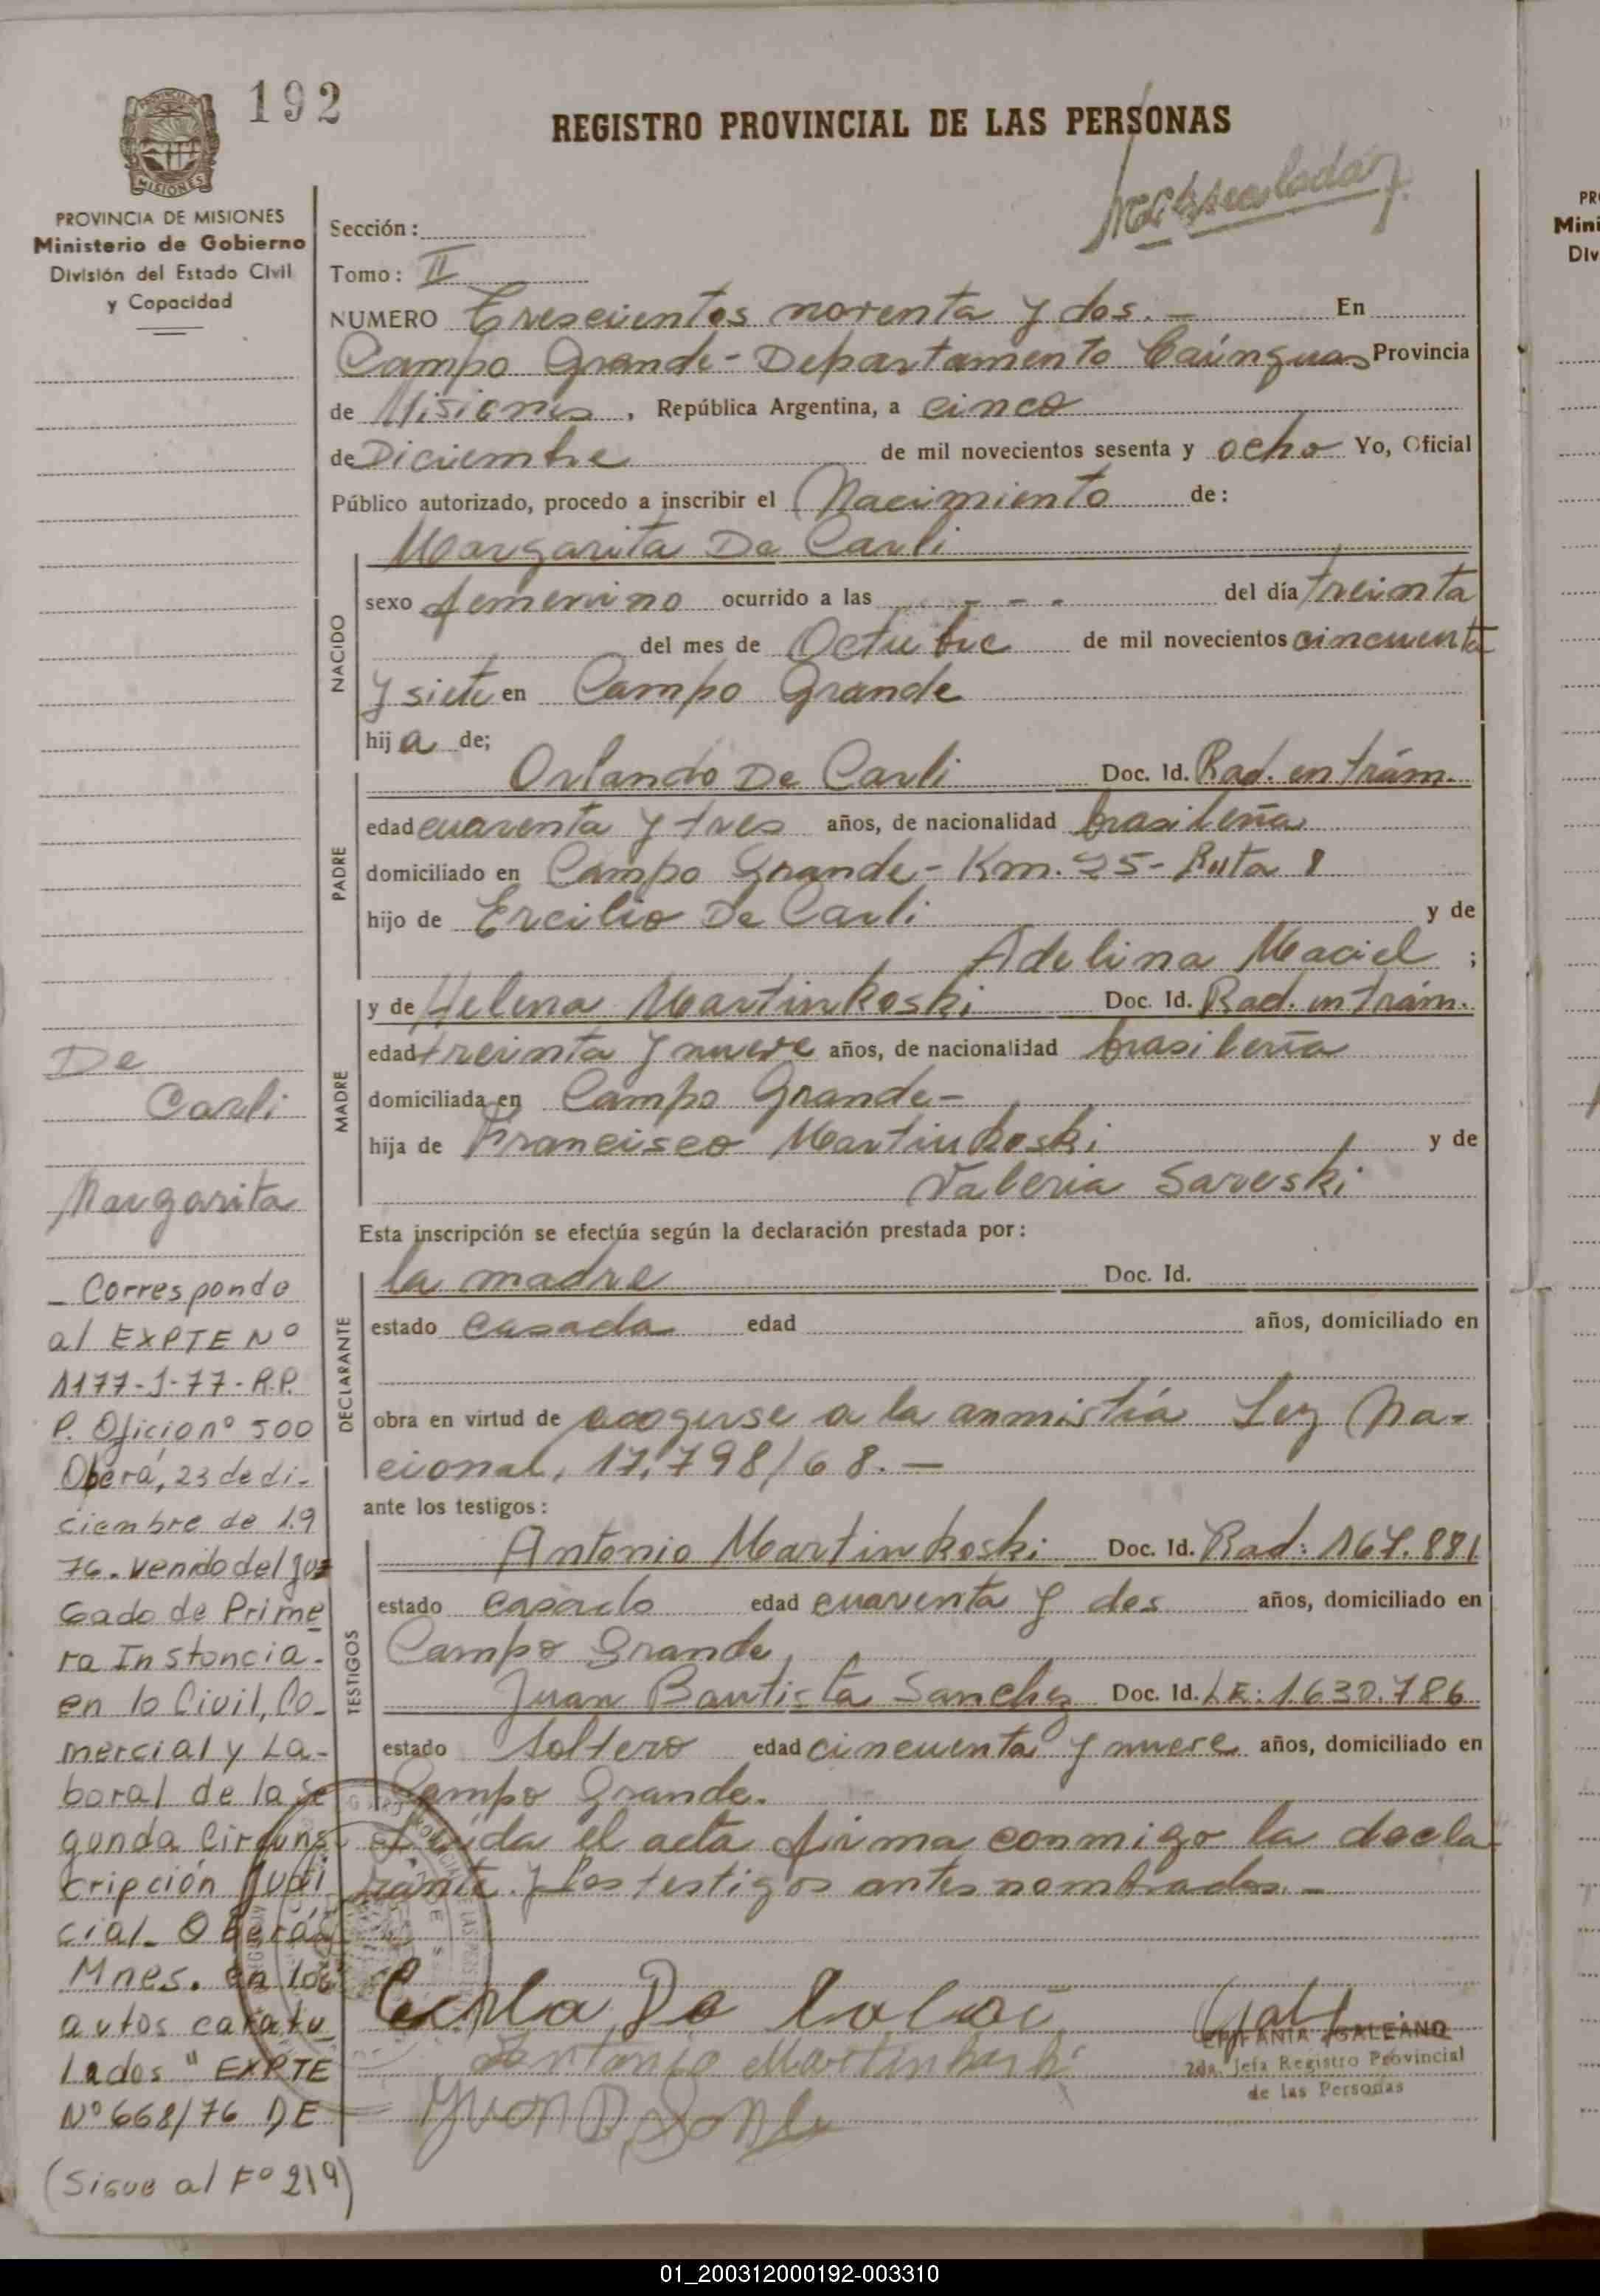 192
REGISTRO PROVINCIAL DE LAS PERSONAS
PROVINCIA DE MISIONES
Ministerio de Gobierno
División del Estado Civil
y Capacidad
Sección:
Tomo: II
NUMERO Trescientos noventa y dos.- En
Campo Grande - Departamento Caínguas Provincia
de Misiones, República Argentina, a cinco
de Diciembre de mil novecientos sesenta y ocho Yo, Oficial
Público autorizado, procedo a inscribir el Nacimiento de:
Margarita De Carli
NACIDO
sexo femenino ocurrido a las - - - del día treinta
del mes de Octubre de mil novecientos cincuenta
y siete en Campo Grande
hija de;
PADRE
Orlando De Carli Doc. Id. Rad. en trám.
edad cuarenta y tres años, de nacionalidad brasileña
domiciliado en Campo Grande - Km. 25 - Ruta 8
hijo de Ercilio De Carli y de
Adelina Maciel ;
MADRE
y de Helena Martinkoski Doc. Id. Rad. en trám.
edad treinta y nueve años, de nacionalidad brasileña
domiciliada en Campo Grande -
hija de Francisco Martinkoski y de
Valeria Sareski
Esta inscripción se efectúa según la declaración prestada por:
DECLARANTE
la madre Doc. Id.
estado casada edad años, domiciliado en
obra en virtud de acogerse a la anmistía Ley Na-
cional, 17.798/68.-
ante los testigos:
TESTIGOS
Antonio Martinkoski Doc. Id. Rad: 167.881
estado casado edad cuarenta y dos años, domiciliado en
Campo Grande
Juan Bautista Sanchez Doc. Id. LE: 1.630.786
estado soltero edad cincuenta y nueve años, domiciliado en
Campo Grande.
Leída el acta firma conmigo la decla-
rante y los testigos antes nombrados.-
Antonio Martinkoski
EPIFANIA GALEANO
2da. Jefa Registro Provincial
de las Personas
De
Carli
Margarita
- Corresponde
al EXPTE Nº
1177-J-77-R.P.
P. Oficio nº 500
Oberá, 23 de di-
ciembre de 19
76. venido del Juz
gado de Prime
ra Instancia.
en lo Civil, Co-
mercial y La-
boral de la Se
gunda Circuns
cripción Judi
cial. Oberá
Mnes. en los
autos caratu
lados " EXPTE
Nº 668/76 DE
(Sigue al Fº 219)
01_200312000192-003310